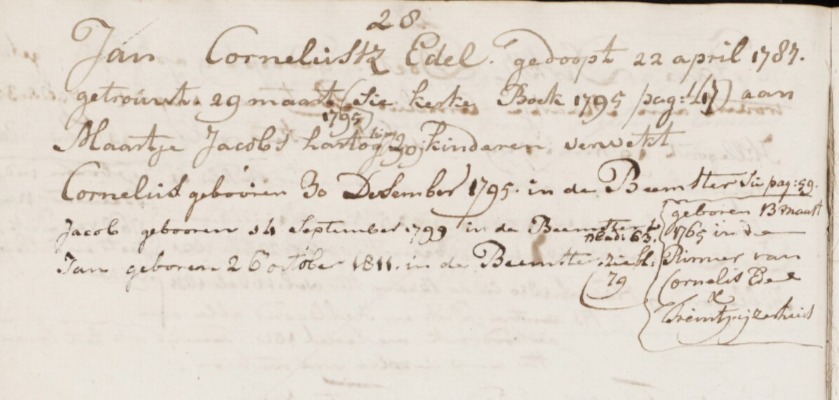 28.
Jan Cornelisz Edel. gedoopt 22 april 1787.
getrouwt. 29 maart (Sie kerke Boek 1795 pag: 147) aan
1795
Maartje Jacobs hartog kinderen verwekt
Cornelis gebooren 30 Desember 1795. in de Beemster Sie pag: 59.
Jacob gebooren 14 September 1799 in de Beemster
bladz 63.
Jan geboren 26 october 1811. in de Beemster. zie bl.
79
geboren 13 maart
1765 in de
Purmer van
Cornelis Edel
&